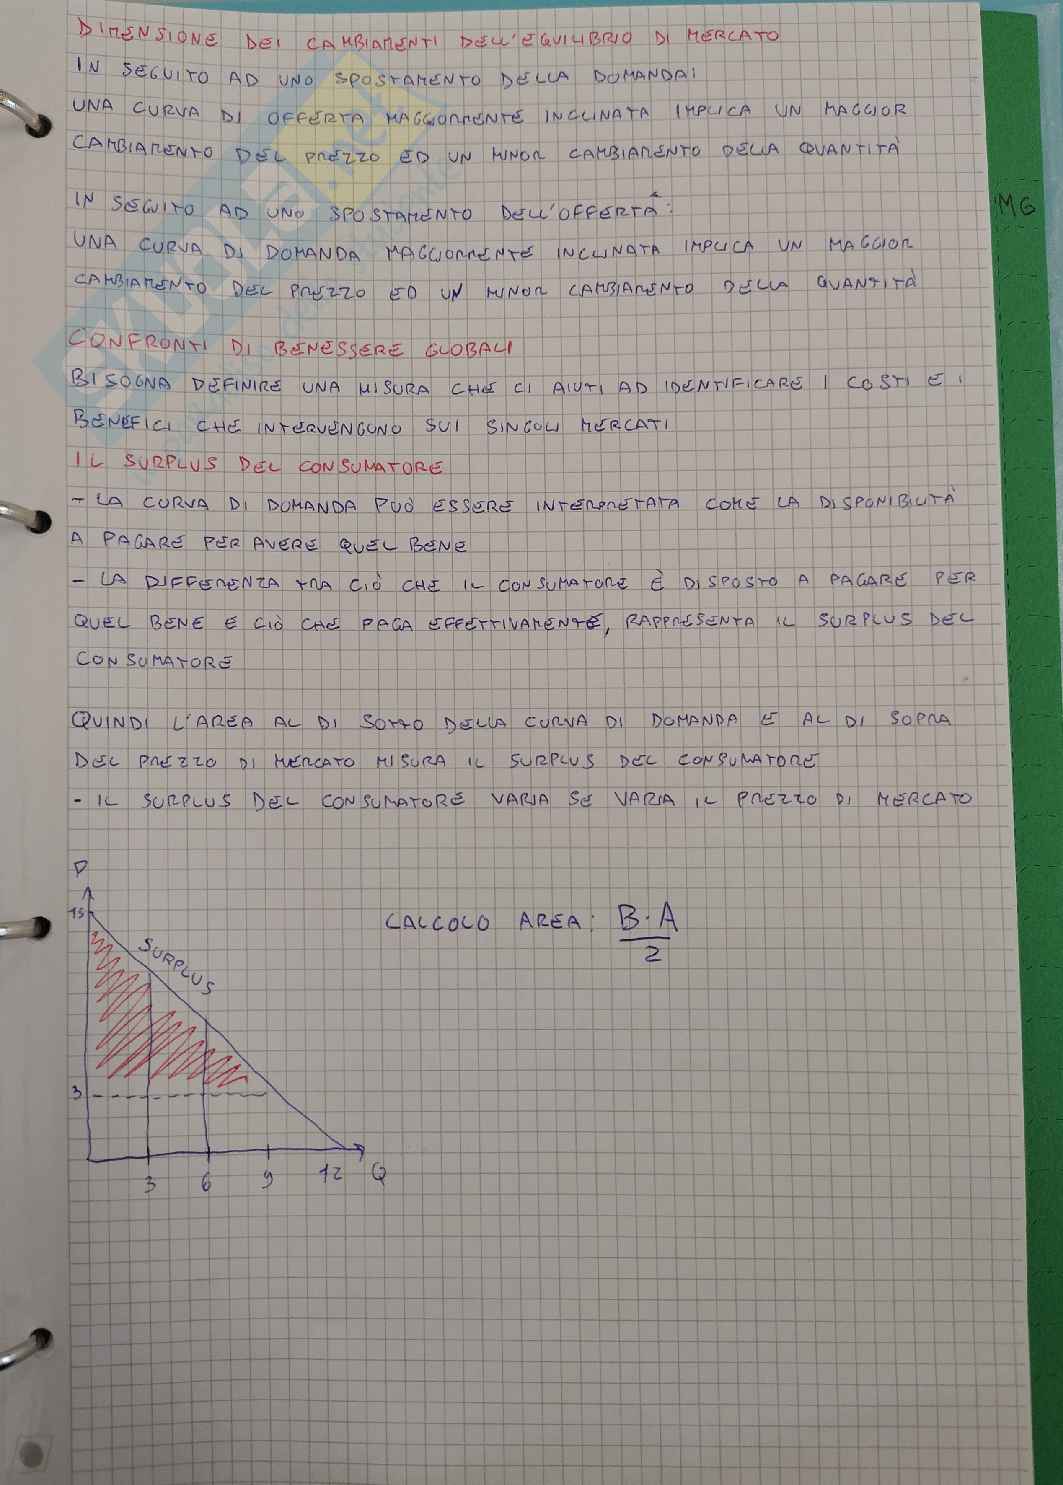 DIMENSIONE DEI CAMBIAMENTI DELL'EQUILIBRIO DI MERCATO
IN SEGUITO AD UNO SPOSTAMENTO DELLA DOMANDA:
UNA CURVA DI OFFERTA MAGGIORMENTE INCLINATA IMPLICA UN MAGGIOR
CAMBIAMENTO DEL PREZZO ED UN MINOR CAMBIAMENTO DELLA QUANTITÀ
IN SEGUITO AD UNO SPOSTAMENTO DELL'OFFERTA:
MG
UNA CURVA DI DOMANDA MAGGIORMENTE INCLINATA IMPLICA UN MAGGIOR
CAMBIAMENTO DEL PREZZO ED UN MINOR CAMBIAMENTO DELLA QUANTITÀ
CONFRONTI DI BENESSERE GLOBALI
BISOGNA DEFINIRE UNA MISURA CHE CI AIUTI AD IDENTIFICARE I COSTI E I
BENEFICI CHE INTERVENGONO SUI SINGOLI MERCATI
IL SURPLUS DEL CONSUMATORE
- LA CURVA DI DOMANDA PUÒ ESSERE INTERPRETATA COME LA DISPONIBILITÀ
A PAGARE PER AVERE QUEL BENE
- LA DIFFERENZA TRA CIÒ CHE IL CONSUMATORE È DISPOSTO A PAGARE PER
QUEL BENE E CIÒ CHE PAGA EFFETTIVAMENTE, RAPPRESENTA IL SURPLUS DEL
CONSUMATORE
QUINDI L'AREA AL DI SOTTO DELLA CURVA DI DOMANDA E AL DI SOPRA
DEL PREZZO DI MERCATO MISURA IL SURPLUS DEL CONSUMATORE
- IL SURPLUS DEL CONSUMATORE VARIA SE VARIA IL PREZZO DI MERCATO
P
15
SURPLUS
CALCOLO AREA: B·A
2
3
3 6 9 12 Q
SKUOLA.net